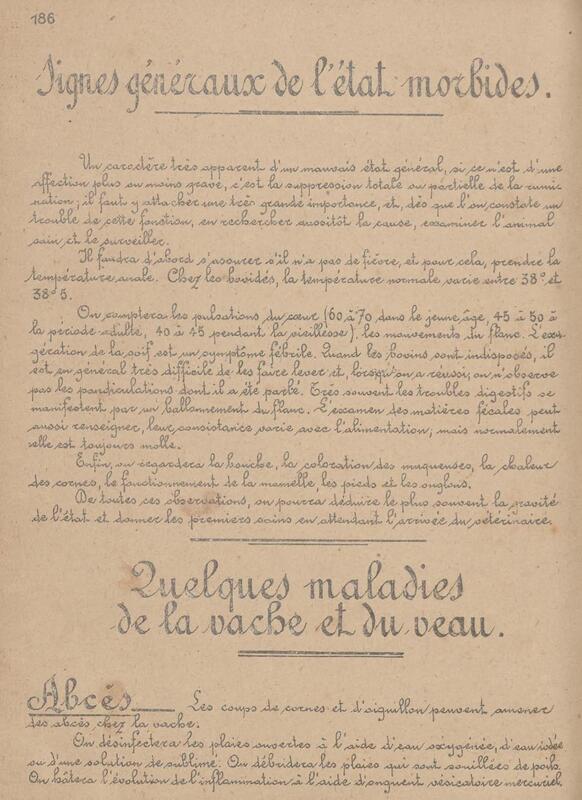 186
Signes généraux de l'état morbides.
Un caractère très apparent d'un mauvais état général, si ce n'est d'une
affection plus ou moins grave, c'est la suppression totale ou partielle de la rumi-
nation; il faut y attacher une très grande importance, et, dès que l'on constate un
trouble de cette fonction, en rechercher aussitôt la cause, examiner l'animal
sain, et le surveiller.
Il faudra d'abord s'assurer s'il n'a pas de fièvre, et pour cela, prendre la
température anale. Chez les bovidés, la température normale varie entre 38° et
38°5.
On comptera les pulsations du cœur (60 à 70 dans le jeune âge, 45 à 50 à
la période adulte, 40 à 45 pendant la vieillesse), les mouvements du flanc. L'exa-
gération de la soif est un symptôme fébrile. Quand les bovins sont indisposés, il
est en général très difficile de les faire lever et, lorsqu'on a réussi, on n'observe
pas les pandiculations dont il a été parlé. Très souvent les troubles digestifs se
manifestent par un ballonnement du flanc. L'examen des matières fécales peut
aussi renseigner, leur consistance varie avec l'alimentation; mais normalement
elle est toujours molle.
Enfin, on regardera la bouche, la coloration des muqueuses, la chaleur
des cornes, le fonctionnement de la mamelle, les pieds et les onglons.
De toutes ces observations, on pourra déduire le plus souvent la gravité
de l'état et donner les premiers soins en attendant l'arrivée du vétérinaire.
Quelques maladies
de la vache et du veau.
Abcès Les coups de cornes et d'aiguillon peuvent amener
des abcès chez la vache.
On désinfectera les plaies ouvertes à l'aide d'eau oxygénée, d'eau iodée
ou d'une solution de sublimé. On débridera les plaies qui sont souillées de poils.
On hâtera l'évolution de l'inflammation à l'aide d'onguent vésicatoire mercuriel.